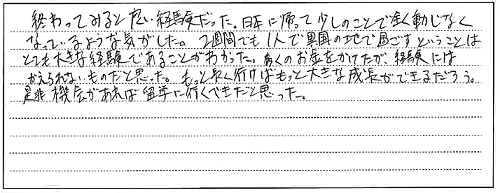 終わってみると広い経験だった。日本に帰って少しのことで全く動じなく
なっているような気がした。2週間でも1人で異国の地で過ごすということは
とても大きな経験であることがわかった。多くのお金をかけたが、経験には
かえられないものだと思った。もっと長く行けばもっと大きな成長ができるだろう。
是非機会があれば留学に行くべきだと思った。